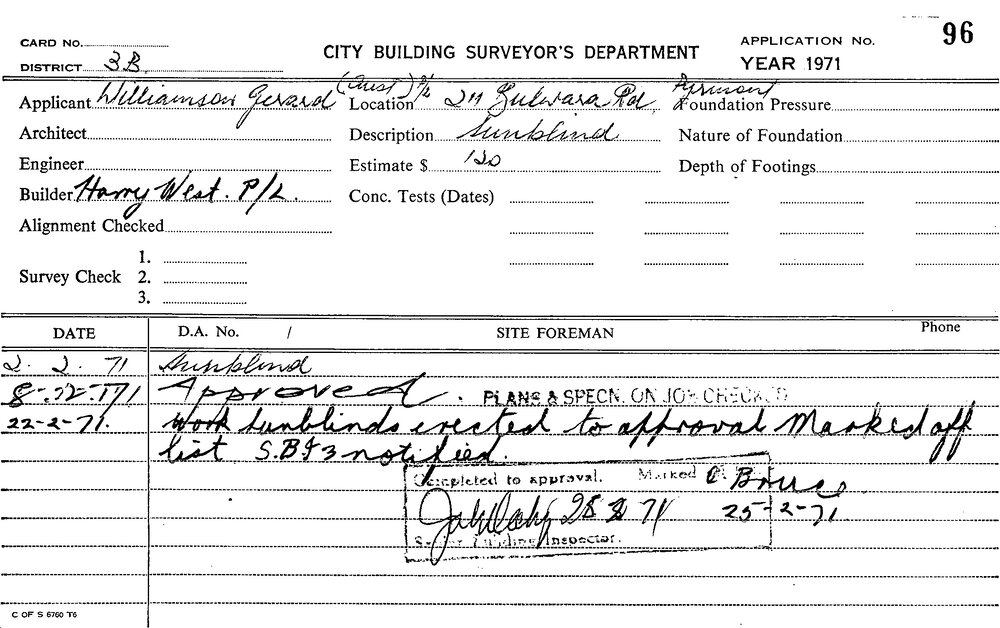 96
CARD No.
CITY BUILDING SURVEYOR'S DEPARTMENT
APPLICATION No.
DISTRICT 3B
YEAR 1971
Applicant Williamson Gerard (Aust) P/L
Location Bulwara Rd Pyrmont
Foundation Pressure
Architect
Description Sunblind
Nature of Foundation
Engineer
Estimate $ 120
Depth of Footings
Builder Harry West. P/L.
Conc. Tests (Dates)
Alignment Checked
1.
Survey Check 2.
3.
DATE D.A. No. / SITE FOREMAN Phone
2. 2. 71 Sunblind
Approved. PLANS & SPECN. ON JOB CHECKED
22-2-71. Work sunblinds erected to approval Marked off
list notified.
Completed to approval. Marked
Bruce
28 71 25-2-71
Building Inspector.
C OF S 6760 T6